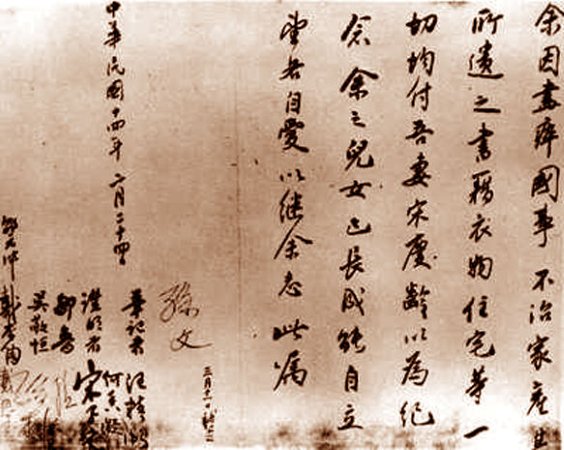 余因盡瘁國事不治家產其
所遺之書籍衣物住宅等一
切均付吾妻宋慶齡以為紀
念余之兒女已長成能自立
望各自愛以継余志此属
孫文
三月十一日補簽
筆記者 汪精衛
何香凝
證明者 宋子文
鄒魯
吳敬恒
邵元冲 戴恩賽
中華民國十四年二月二十四日